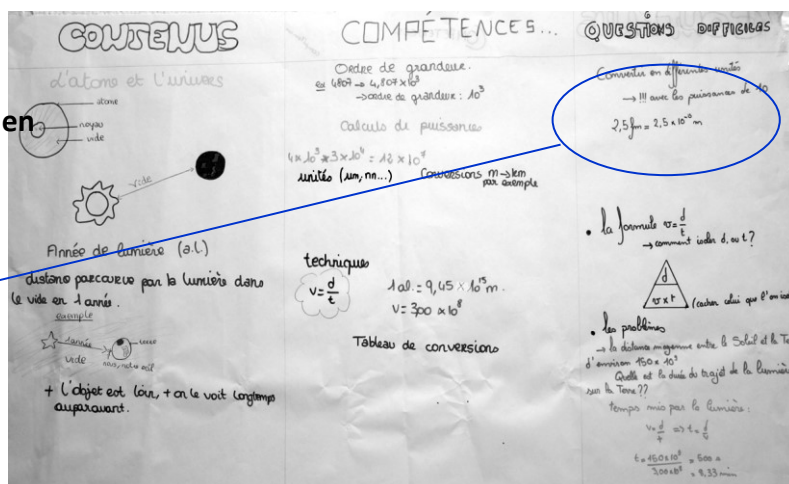 en
CONTENUS
d'atome et l'univers
atome
noyau
vide
vide
Année de lumière (a.l.)
distance parcourue par la lumière dans
le vide en 1 année.
exemple
1 année
terre
vide
nous, notre œil
+ l'objet est loin, + on le voit longtemps
auparavant.
COMPÉTENCES...
Ordre de grandeur.
ex 4807 → 4,807 x 10³
→ ordre de grandeur : 10³
Calculs de puissances
4 x 10³ x 3 x 10⁴ = 12 x 10⁷
unités (um, nn...) Conversions m → km
par exemple
techniques
v = d/t
1 al. = 9,45 x 10¹⁵ m.
V = 3,00 x 10⁸
Tableau de conversions
QUESTIONS DIFFICILES
Convertir en différentes unités
→ !!! avec les puissances de 10
2,5 fm = 2,5 x 10 m
• la formule v = d/t
→ comment isoler d, ou t ?
d
v x t
(cacher celui que l'on iso
• les problèmes
→ la distance moyenne entre le Soleil et la Te
d'environ 150 x 10
Quelle est la durée du trajet de la lumière
sur la Terre ??
temps mis par la lumière :
v = d/t => t = d/v
t = 150 x 10⁹ / 3,00 x 10⁸ = 500 s
= 8,33 min